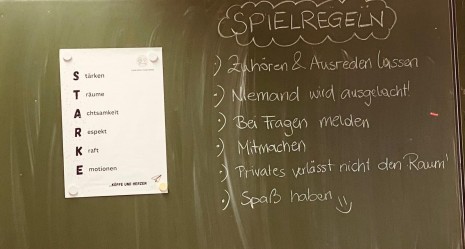 S tärken
T räume
A chtsamkeit
R espekt
K raft
E motionen
...KÖPFE UND HERZEN
SPIELREGELN
·) Zuhören & Ausreden lassen
·) Niemand wird ausgelacht!
·) Bei Fragen melden
·) Mitmachen
·) Privales verlässt nicht den Raum!
·) Spaß haben